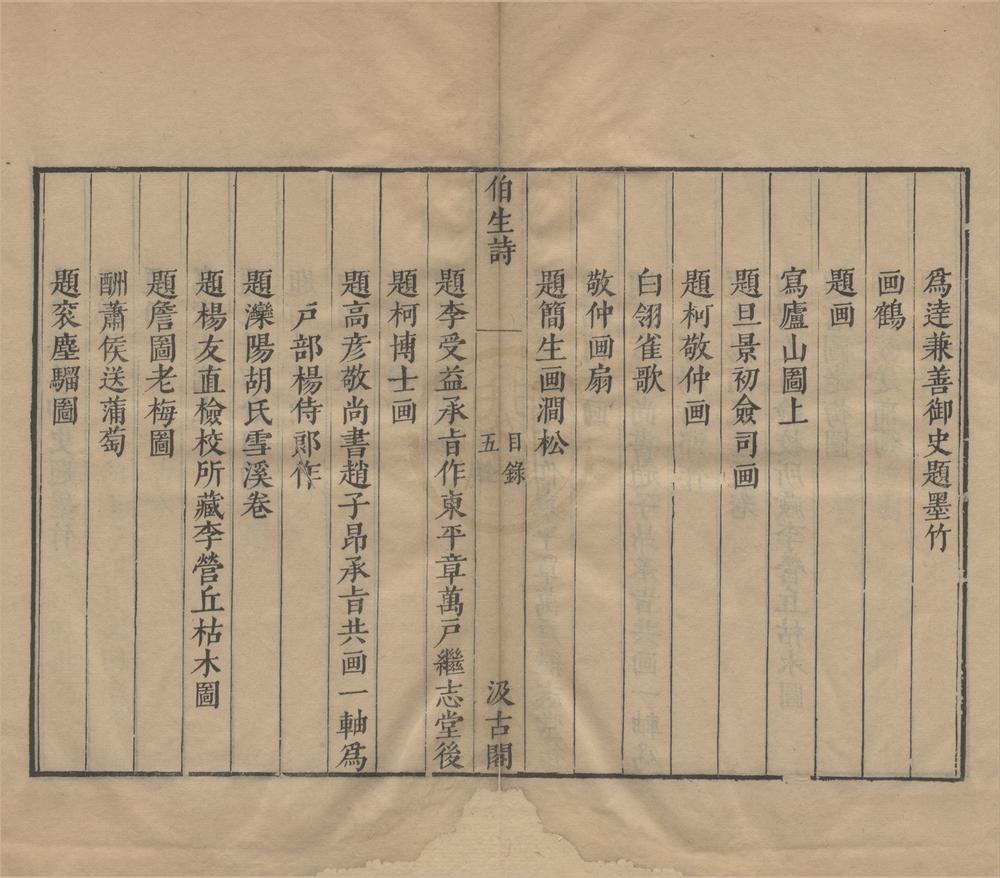 爲達兼善御史題墨竹
画鶴
題画
寫廬山圖上
題旦景初僉司画
題柯敬仲画
白翎雀歌
敬仲画扇
題簡生画澗松
伯生詩
目錄
五
汲古閣
題李受益承旨作東平章萬戸繼志堂後
題柯博士画
題高彦敬尚書趙子昂承旨共画一軸爲
戸部楊侍郎作
題灤陽胡氏雪溪卷
題楊友直檢校所藏李營丘枯木圖
題詹圖老梅圖
酬蕭侯送蒲萄
題衮塵騮圖